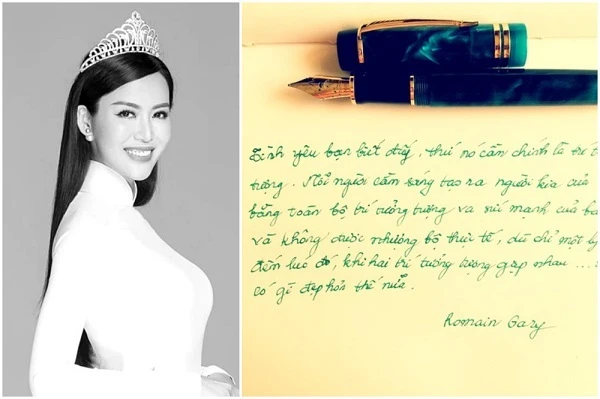 Tình yêu bạn biết đấy, thứ nó cần chính là trí t
tượng. Mỗi người cần sáng tạo ra người kia của
bằng toàn bộ trí tưởng tượng và sức mạnh của b
và không được nhượng bộ thực tế, dù chỉ một ly
đến lúc đó, khi hai trí tưởng tượng gặp nhau ...
có gì đẹp hơn thế nữa.
Romain Gary